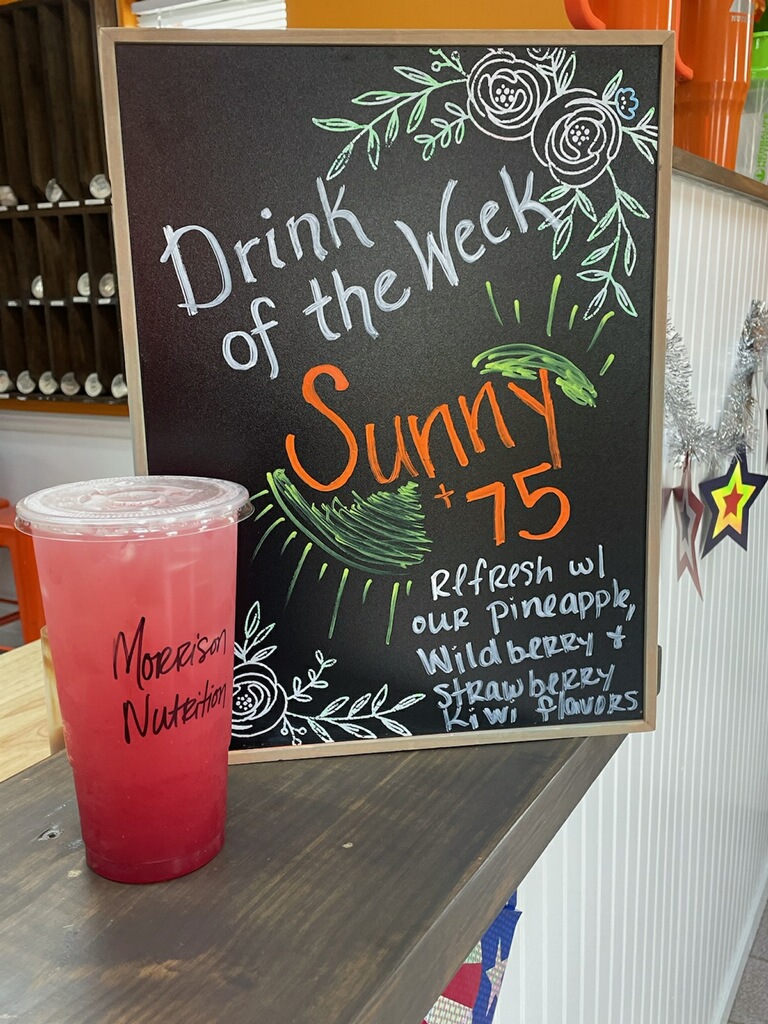 Drink
of the Week
Sunny
+ 75
Refresh w/
our pineapple,
Wildberry +
Strawberry
Kiwi flavors
Morrison
Nutrition